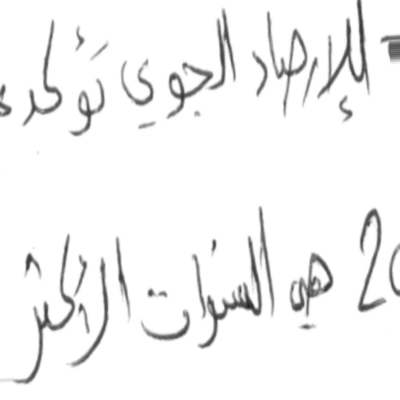 للإرصاد الجوي تؤكد
20 هي السنوات الأكثر